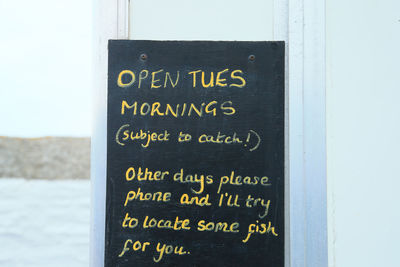 OPEN TUES
MORNINGS
(subject to catch!)
Other days please
phone and I'll try
to locate some fish
for you.